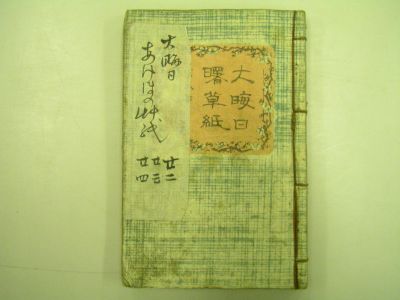 大晦日
曙草紙
大晦日
あけほの艸紙
廿二
廿三
廿四